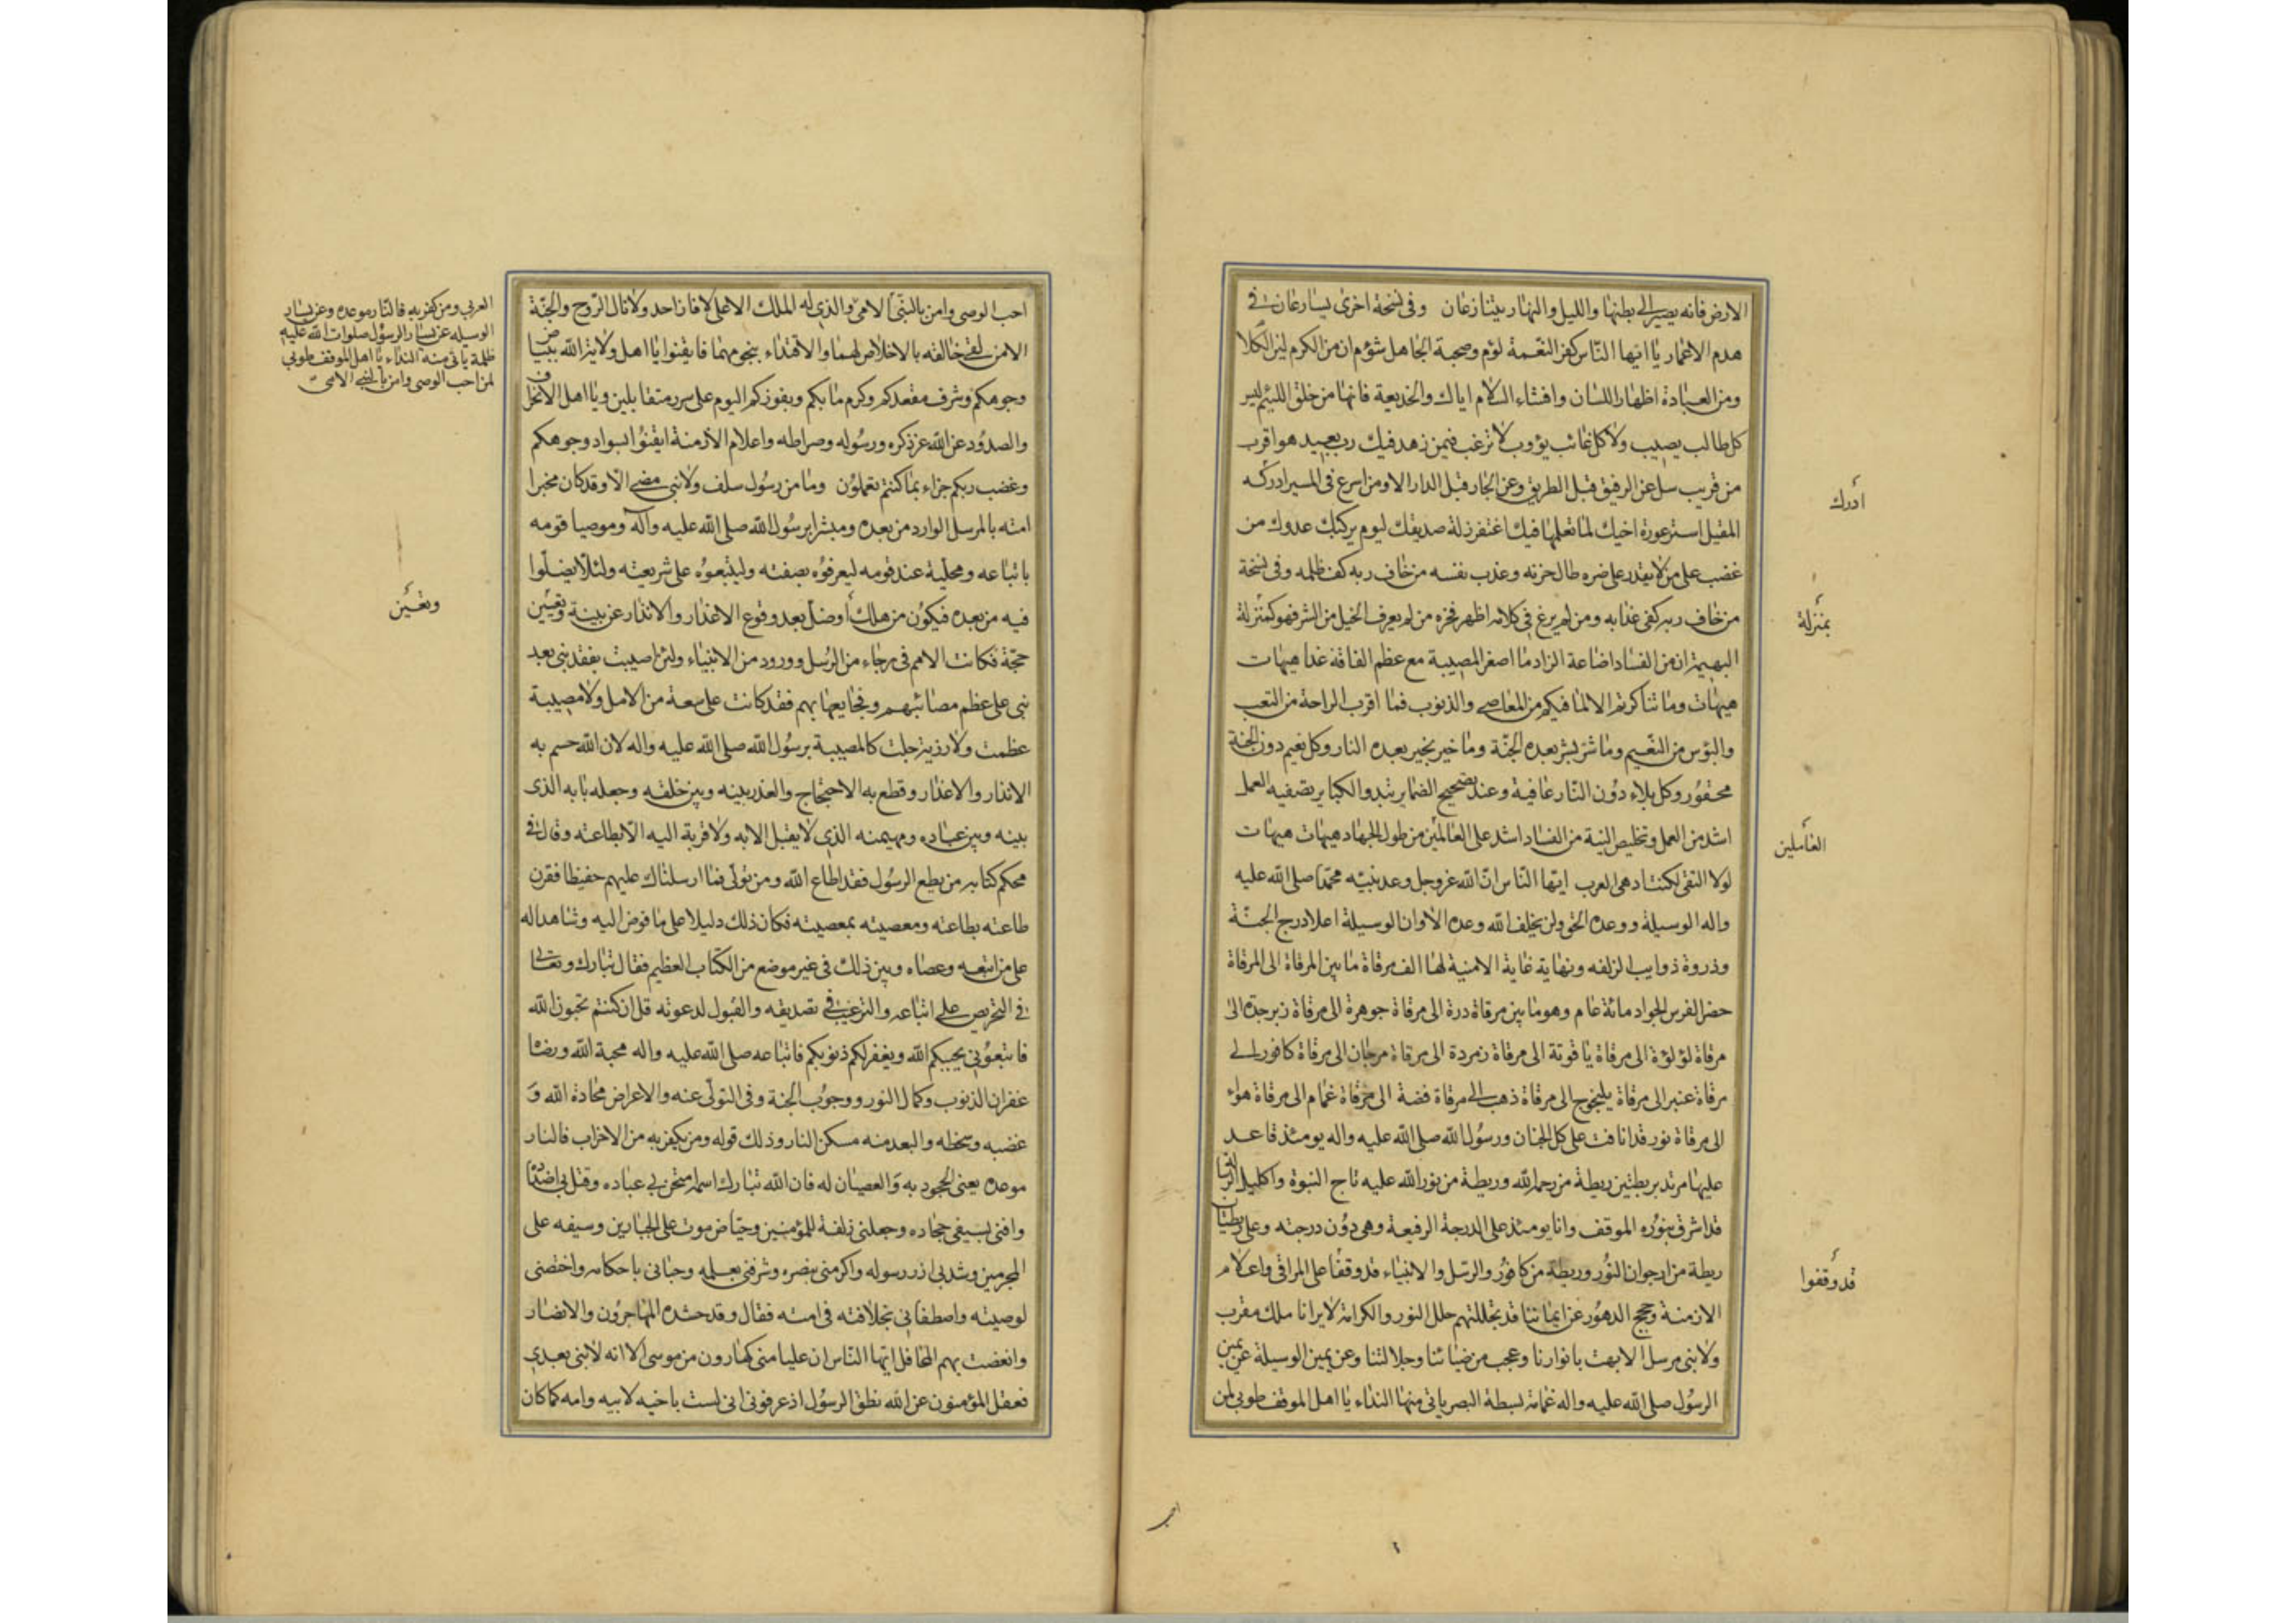 الارض فانه يصير الى بطنها والليل والنهار يتنازعان وفى نسخة اخرى يسارعان فى
هدم الاعمار يا ايها الناس كفر النعمة لؤم وصحبة الجاهل شؤم ان من الكرم لين الكلام
ومن العبادة اظهار اللسان وافشاء السلام اياك والخديعة فانها من خلق اللئيم ليس
كل طالب يصيب ولا كل غائب يؤوب لا ترغب فيمن زهد فيك رب بعيد هو اقرب
من قريب سل عن الرفيق قبل الطريق وعن الجار قبل الدار الا ومن اسرع فى المسير ادركه
المقيل استر عورة اخيك لما تعلمها فيك اغتفر زلة صديقك ليوم يركبك عدوك من
غضب على من لا يقدر على ضره طال حزنه وعذب نفسه من خاف ربه كف ظلمه وفى نسخة
من خاف ربه كفى عذابه ومن لم يرغ فى كلامه اظهر فخره من لم يعرف الخير من الشر فهو كمنزلة
البهيمة ان من الفساد اضاعة الزاد ما اصغر المصيبة مع عظم الفاقة غدا هيهات
هيهات وما تناكرتم الا لما فيكم من المعاصى والذنوب فما اقرب الراحة من التعب
والبؤس من النعيم وما شر بشر بعده الجنة وما خير بخير بعده النار وكل نعيم دون الجنة
محقور وكل بلاء دون النار عافية وعند تصحيح الضماير تبدو الكباير تصفية العمل
اشد من العمل وتخليص النية من الفساد اشد على العالمين من طول الجهاد هيهات هيهات
لولا التقى لكنت ادهى العرب ايها الناس ان الله عز وجل وعد نبيه محمدا صلى الله عليه
واله الوسيلة ووعده الحق ولن يخلف الله وعده الا وان الوسيلة اعلا درج الجنة
وذروة ذوايب الزلفه ونهاية غاية الامنية لها الف مرقاة ما بين المرقاة الى المرقاة
حضر الفرس الجواد مائة عام وهو ما بين مرقاة درة الى مرقاة جوهرة الى مرقاة زبرجدة الى
مرقاة لؤلؤة الى مرقاة ياقوتة الى مرقاة زمردة الى مرقاة مرجان الى مرقاة كافور الى
مرقاة عنبر الى مرقاة يلنجوج الى مرقاة ذهب الى مرقاة فضة الى مرقاة غمام الى مرقاة هواء
الى مرقاة نور قد انافت على كل الجنان ورسول الله صلى الله عليه واله يومئذ قاعد
عليها مرتد بريطتين ريطة من رحمة الله وريطة من نور الله عليه تاج النبوة واكليل الرسالة
قد اشرق بنوره الموقف وانا يومئذ على الدرجة الرفيعة وهى دون درجته وعلى ريطتان
ريطة من ارجوان النور وريطة من كافور والرسل والانبياء قد وقفا على المراقى واعلام
الازمنة وحجج الدهور عن ايماننا قد تجللتهم حلل النور والكرامة لا يرانا ملك مقرب
ولا نبى مرسل الا بهت بانوارنا وعجب من ضيائنا وجلالتنا وعن يمين الوسيلة عن يمين
الرسول صلى الله عليه واله غمامة بسطة البصر ياتى منها النداء يا اهل الموقف طوبى لمن
ادرك
بمنزلة
العاملين
قد وقفوا
احب
احب الوصى وامن بالنبى الامى والذى له الملك الاعلى لا فاز احد ولا نال الروح والجنة
الا من لقى خالقه بالاخلاص لهما والاقتداء بنجومهما فايقنوا يا اهل ولاية الله ببياض
وجوهكم وشرف مقعدكم وكرم مابكم وبفوزكم اليوم على سرر متقابلين ويا اهل الانحراف
والصدود عن الله عز ذكره ورسوله وصراطه واعلام الازمنة ايقنوا بسواد وجوهكم
وغضب ربكم جزاء بما كنتم تعملون وما من رسول سلف ولا نبى مضى الا وقد كان مخبرا
امته بالمرسل الوارد من بعده ومبشرا برسول الله صلى الله عليه وآله وموصيا قومه
باتباعه ومحليه عند قومه ليعرفوه بصفته وليتبعوه على شريعته ولئلا يضلوا
فيه من بعده فيكون من هلك او ضل بعد وقوع الاعذار والانذار عن بينة وتعيين
حجة فكانت الامم فى رجاء من الرسل وورود من الانبياء ولئن اصيبت بفقد نبى بعد
نبى على عظم مصائبهم وفجايعها بهم فقد كانت على سعة من الامل ولا مصيبة
عظمت ولا رزية جلت كالمصيبة برسول الله صلى الله عليه واله لان الله حسم به
الانذار والاعذار وقطع به الاحتجاج والعذر بينه وبين خلقه وجعله بابه الذى
بينه وبين عباده ومهيمنه الذى لا يقبل الا به ولا قربة اليه الا بطاعته وقال فى
محكم كتابه من يطع الرسول فقد اطاع الله ومن تولى فما ارسلناك عليهم حفيظا فقرن
طاعته بطاعته ومعصيته بمعصيته فكان ذلك دليلا على ما فوض اليه وشاهدا له
على من اتبعه وعصاه وبين ذلك فى غير موضع من الكتاب العظيم فقال تبارك وتعالى
فى التحريص على اتباعه والترغيب فى تصديقه والقبول لدعوته قل ان كنتم تحبون الله
فاتبعونى يحببكم الله ويغفر لكم ذنوبكم فاتباعه صلى الله عليه واله محبة الله ورضاه
غفران الذنوب وكمال النور ووجوب الجنة وفى التولى عنه والاعراض محادة الله و
غضبه وسخطه والبعد منه مسكن النار وذلك قوله ومن يكفر به من الاحزاب فالنار
موعده يعنى الجحود به والعصيان له فان الله تبارك اسمه امتحن بى عباده وقتل بى اضداده
وافنى بسيفى جحاده وجعلنى زلفة للمؤمنين وحياض موت على الجبارين وسيفه على
المجرمين وشد بى ازر رسوله واكرمنى بنصره وشرفنى بعلمه وحبانى باحكامه واختصنى
لوصيته واصطفانى بخلافته فى امته فقال وقد حشده المهاجرون والانصار
وانغصت بهم المحافل ايها الناس ان عليا منى كهارون من موسى الا انه لا نبى بعدى
فعقل المؤمنون عن الله نطق الرسول اذ عرفونى انى لست باخيه لابيه وامه كما كان
العربى ومن كفر به فالنار موعده وعن يسار
الوسيله عن يسار الرسول صلوات الله عليه
ظلمة ياتى منه النداء يا اهل الموقف طوبى
لمن احب الوصى وامن بالنبى الامى
وتعيين